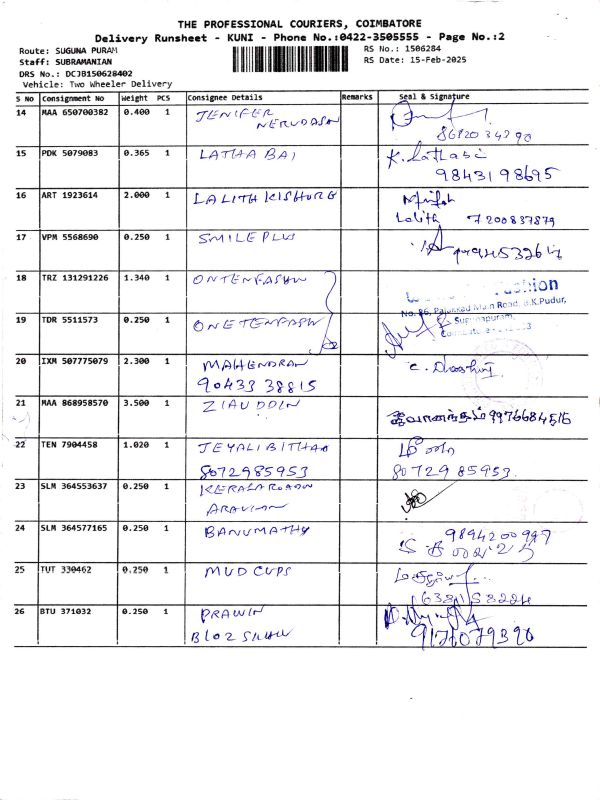 THE PROFESSIONAL COURIERS, COIMBATORE
Delivery Runsheet - KUNI - Phone No.:0422-3505555 - Page No.:2
Route: SUGUNA PURAM
RS No.: 1506284
Staff: SUBRAMANIAN
RS Date: 15-Feb-2025
DRS No.: DCJB150628402
Vehicle: Two Wheeler Delivery
S NO Consignment No Weight PCS Consignee Details Remarks Seal & Signature
14 MAA 650700382 0.400 1 JENIFER
NERUDASN
15 PDK 5079083 0.365 1 LATHA BAI
9843198695
16 ART 1923614 2.000 1 LALITH KISHORE
Lalith 7200837879
17 VPM 5568690 0.250 1 SMILE PLUS
18 TRZ 131291226 1.340 1
No. 86, Palakkad Main Road, B.K.Pudur,
Sugunapuram,
19 TDR 5511573 0.250 1
20 IXM 507775079 2.300 1 MAHENDRAN
90433 38815
21 MAA 868958570 3.500 1 ZIAUDDIN
ஜீவானந்தம் 9976684516
22 TEN 7904458 1.020 1 JEYALIBITHAA
8072985953 8072985953
23 SLM 364553637 0.250 1
24 SLM 364577165 0.250 1 BANUMATHY
9894200997
25 TUT 330462 0.250 1 MUD CUPS
26 BTU 371032 0.250 1 PRAWIN
9176079390